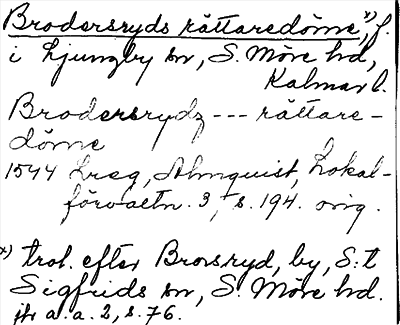 Brodersryds rättaredöme,x) f.
i Ljungby sn, S. Möre hd,
Kalmar l.
Brodersrydz --- rättare-
döme
1544 Lreg, Almquist, Lokal-
förvaltn. 3, s. 194. orig.
x) trol. efter Brorsryd, by, S:t
Sigfrids sn, S. Möre hd.
jfr a.a. 2, s. 76.